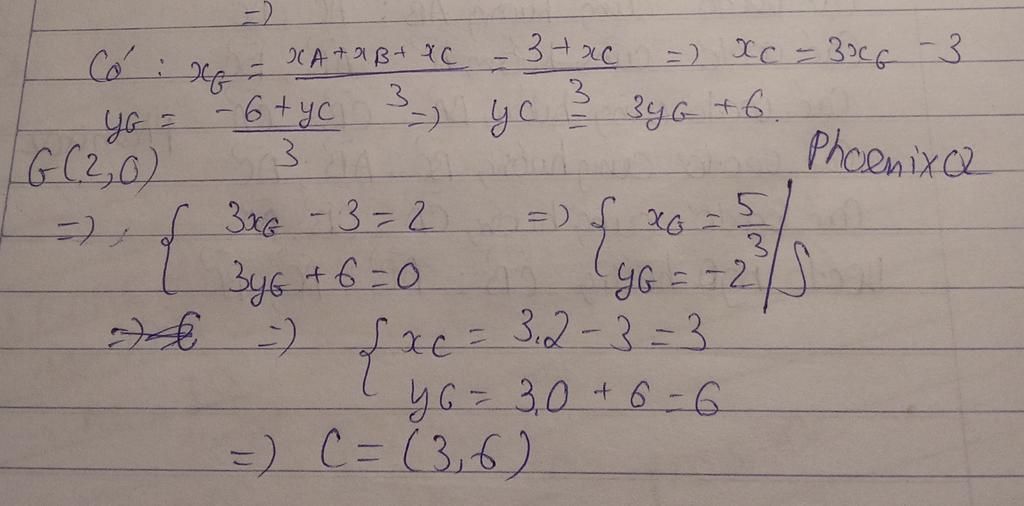 =)
Có : xG = xA+xB+xC / 3 = 3+xC / 3 =) xC = 3xG - 3
yG = -6+yC / 3 =) yC = 3yG + 6.
G(2,0)
PhoenixQ
=) { 3xG - 3 = 2 =) { xG = 5/3
3yG + 6 = 0 yG = -2 / S
=) { xC = 3.2 - 3 = 3
yG = 3.0 + 6 = 6
=) C = (3,6)